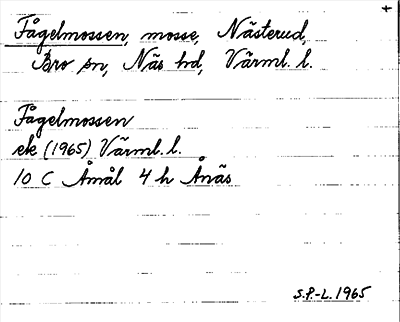 Fågelmossen, mosse, Nästerud,
Bro sn, Näs hd, Värml. l.
Fågelmossen
ek (1965) Värml. l.
10 C Åmål 4 h Ånäs
S.P.-L. 1965